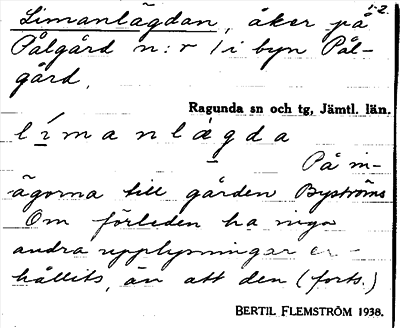 1-2.
Limanlägdan, åker på
Pålgård n:r 1 i byn Pål-
gård.
Ragunda sn och tg, Jämtl. län.
límanlägda
På in-
ägorna till gården Byströms
Om förleden ha inga
andra upplysningar er-
hållits, än att den (forts.)
BERTIL FLEMSTRÖM 1938.